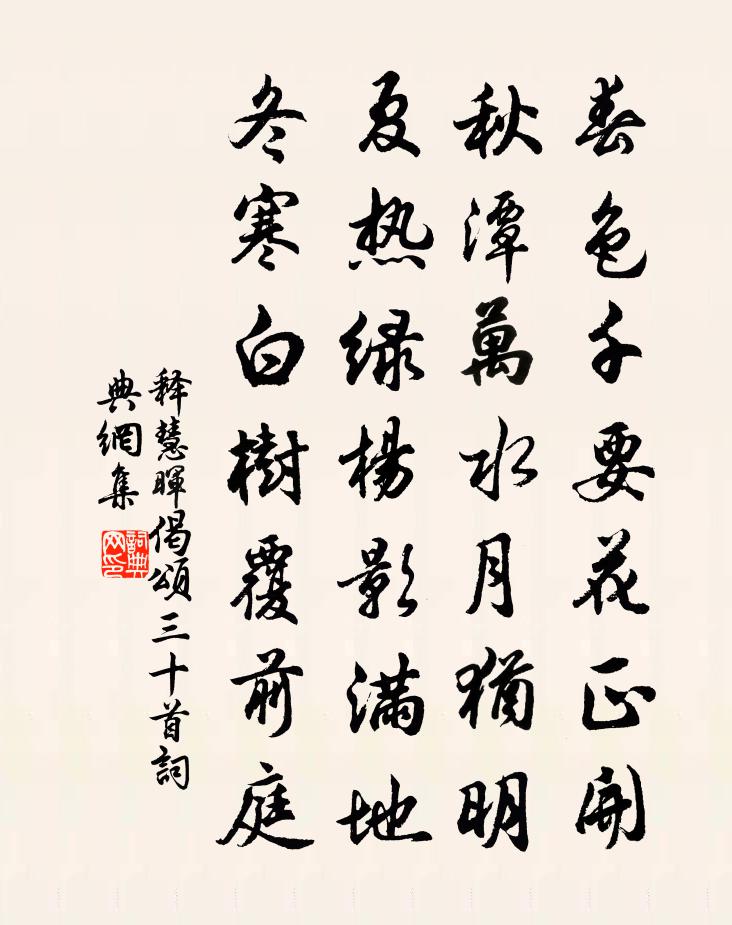 春色千要花正開
秋潭萬水月猶明
夏热绿楊影满地
冬寒白樹覆前庭
释慧暉偈頌三十首詞
典網集
詞典网印